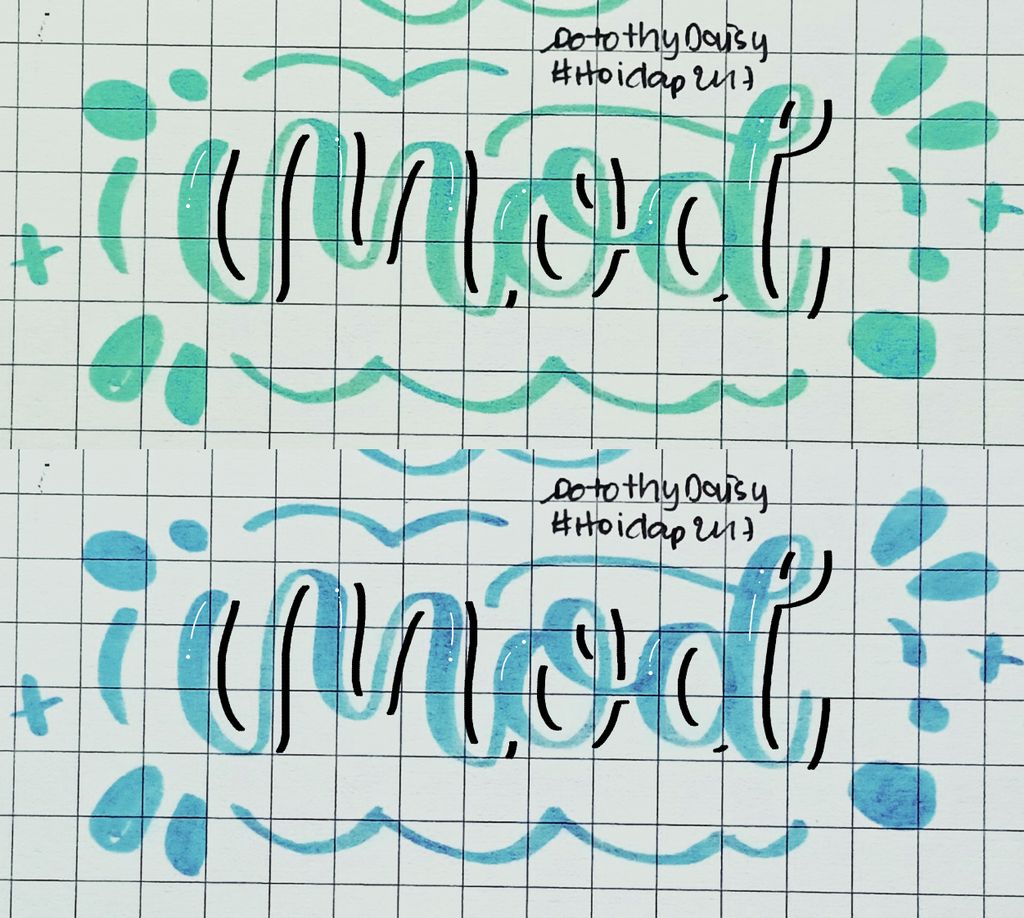 DorothyDaisy
#Hoidap247
mod
DorothyDaisy
#Hoidap247
mod